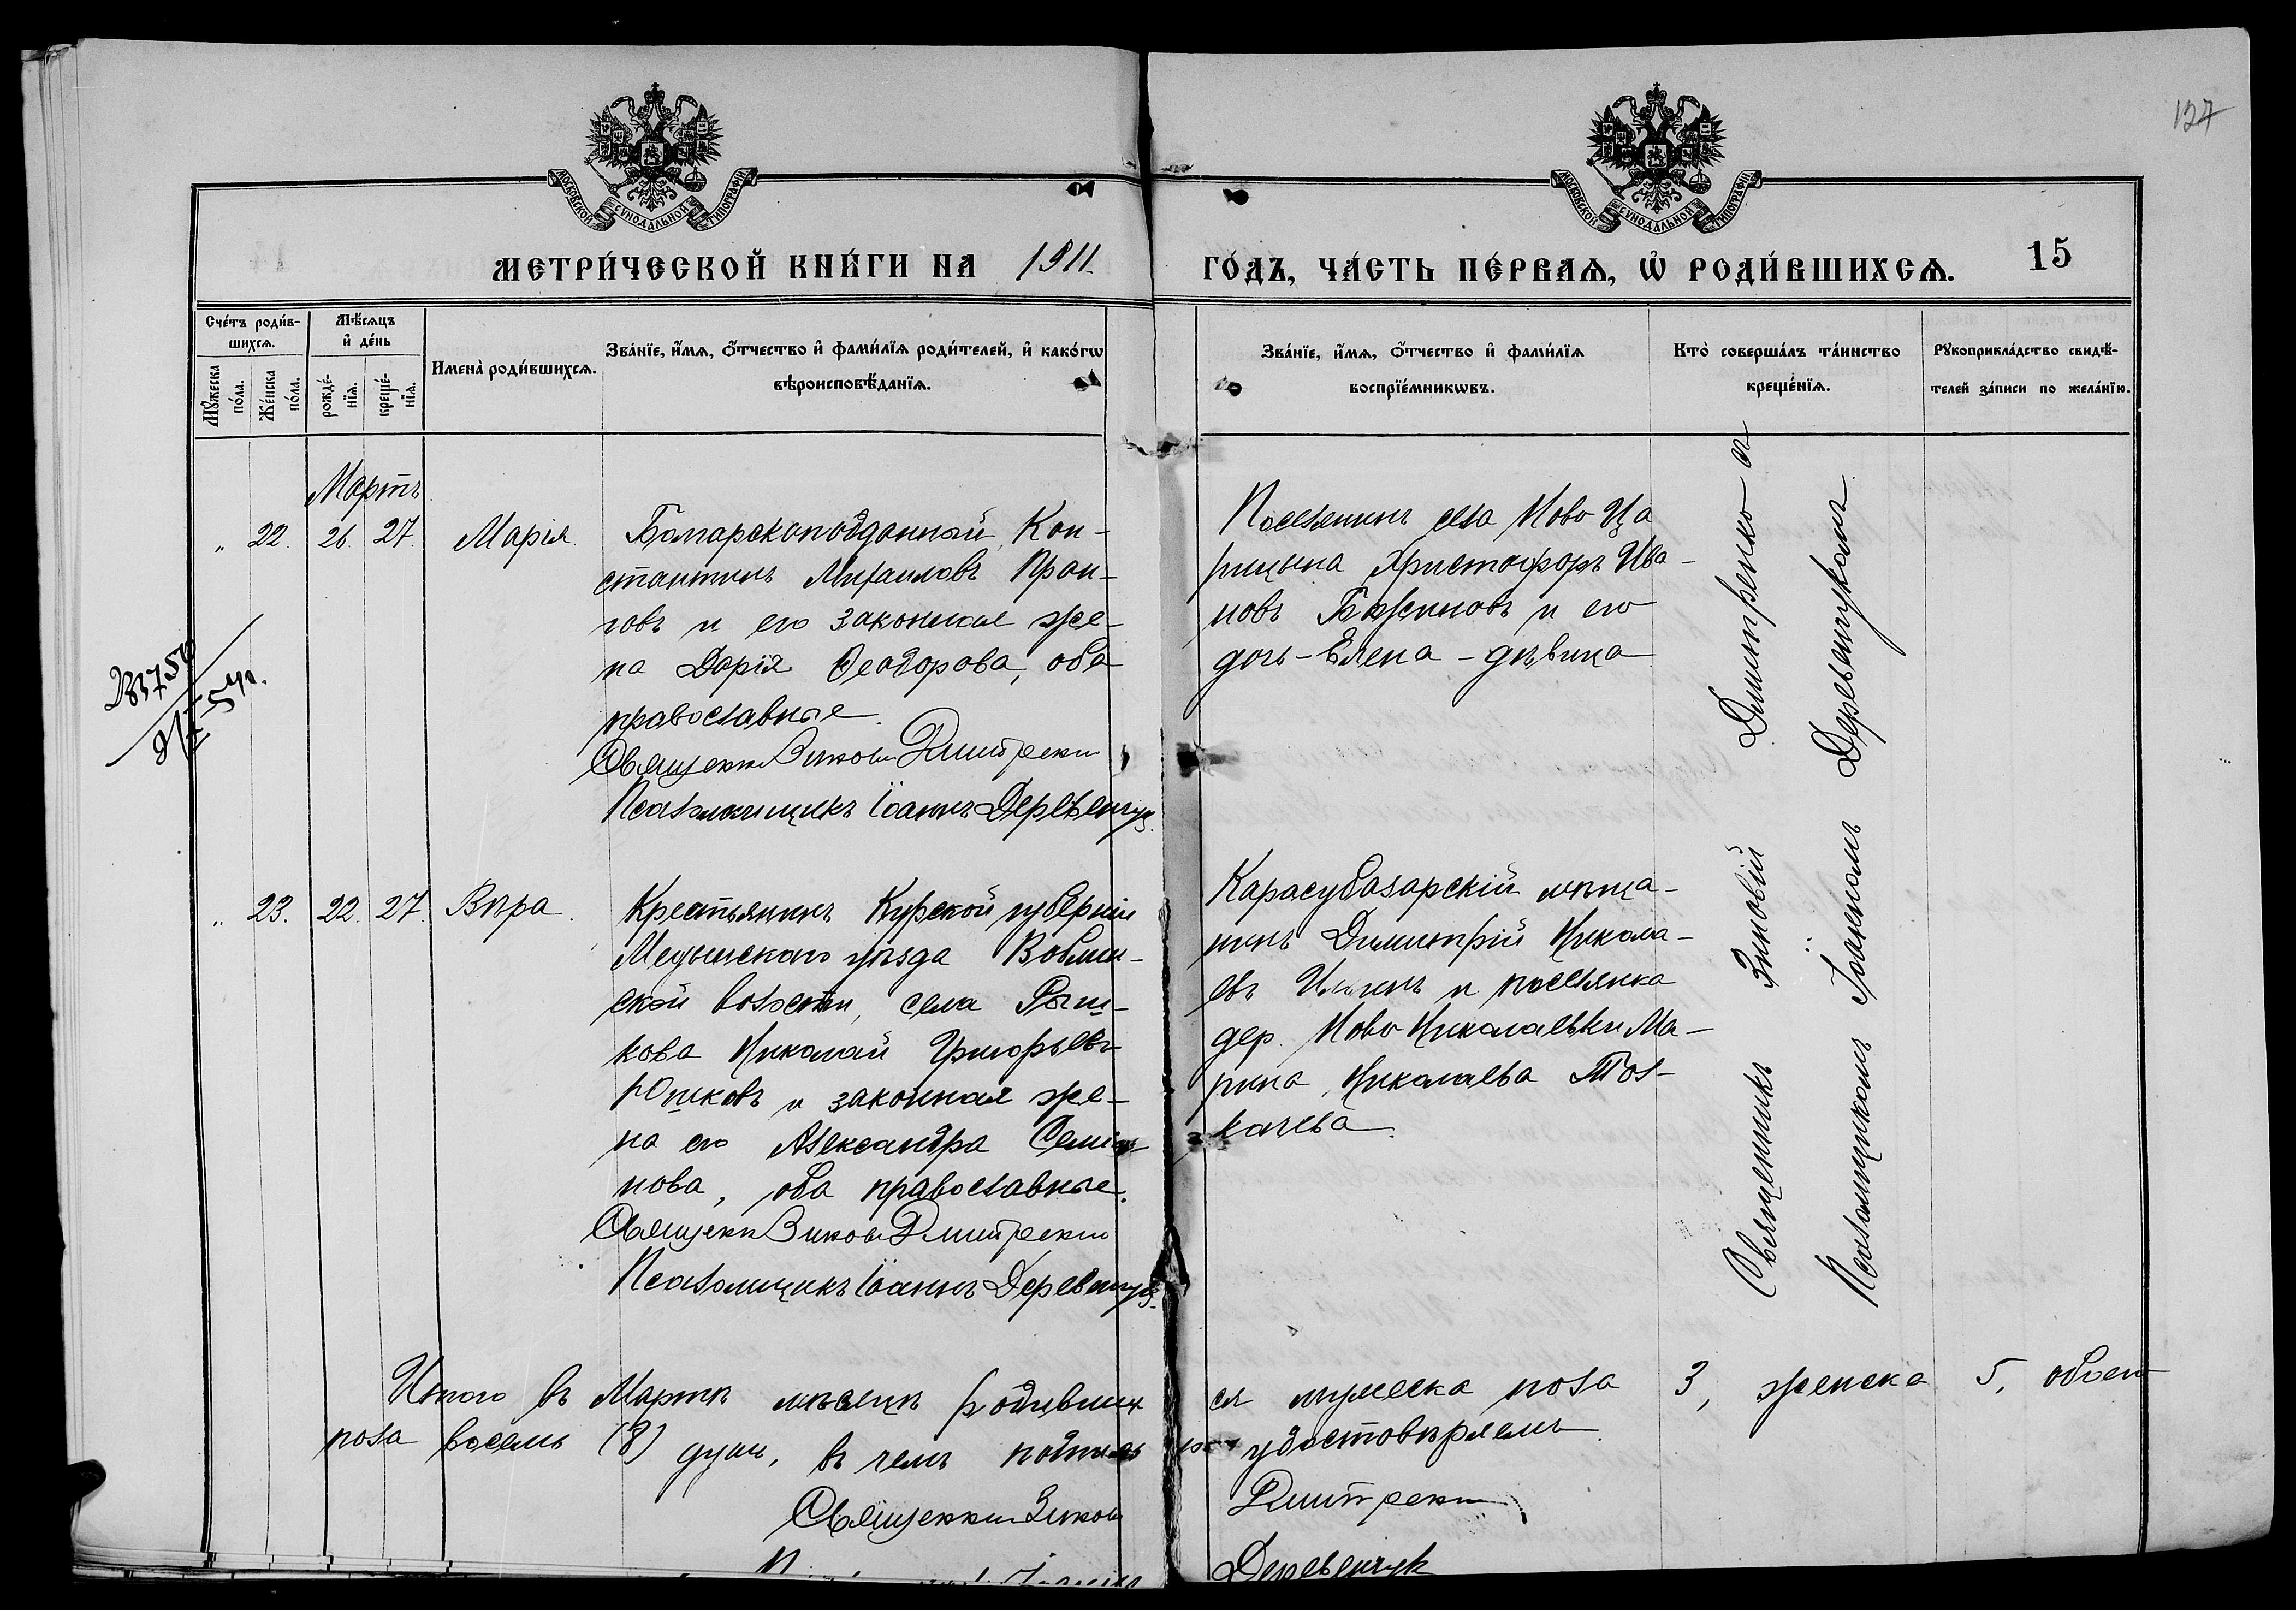 127
МОСКОВСКОЙ СУНОДАЛЬНОЙ ТИПОГРАФІИ
МОСКОВСКОЙ СУНОДАЛЬНОЙ ТИПОГРАФІИ
МЕТРИ́ЧЕСКОЙ КНИ́ГИ НА 1911.
ГО́ДЪ, ЧА́СТЬ ПЕ́РВАѦ, Ѡ҆ РОДИ́ВШИХСѦ.
15
Сче́тъ роди́в-
шихсѧ.
Мꙋ́жеска
по́ла.
Же́нска
по́ла.
Мѣ́сѧцъ
и҆ де́нь
рожде́-
нїѧ.
креще́-
нїѧ.
Имена̀ роди́вшихсѧ.
Зва́нїе, и҆́мѧ, ѻ҆́тчество и҆ фами́лїѧ роди́телей, и҆ како́гѡ
вѣроисповѣ́данїѧ.
Зва́нїе, и҆́мѧ, ѻ҆́тчество и҆ фами́лїѧ
воспрїе́мникѡвъ.
Кто̀ соверша́лъ та́инство
креще́нїѧ.
Рꙋкоприкла́дство свидѣ́-
телей за́писи по жела́нїю.
Мартъ
" 22. 26. 27. Марія.
Болгарскоподданный, Кон-
стантинъ Михаиловъ Пран-
говъ и его законная же-
на Дарія Ѳеодорова, оба
православные.
Священник Зиновий Дмитренко
Псаломщикъ Іоаннъ Деревенчук
Поселянинъ села Ново Ца
рицына Христофоръ Ива-
новъ Бажиновъ и его
дочь-Елена-дѣвица
" 23. 22. 27. Вѣра.
Крестьянинъ Курской губерніи
уѣзда
ской волости, села Рыш-
кова Николай Григорьевъ
Юшковъ и законная же-
на его Александра Семіо-
нова, оба православные.
Священник Зиновий Дмитренко
Псаломщикъ Іоаннъ Деревенчук
Карасубазарскій мѣща-
нинъ Димитрій Никола-
евъ и поселянка
дер. Ново Николаевки Ма-
рина Николаева Тол-
качева.
Священникъ Зиновій Димитренко съ
Псаломщикомъ Іоанномъ Деревенчукомъ
Итого въ Мартѣ мѣсяцѣ родивших
ся мужеска пола 3, женска 5, обоего
пола восемь (8) душ, въ чемъ подписью удостовѣряемъ
Священник Зиновий Дмитренко
Деревенчук